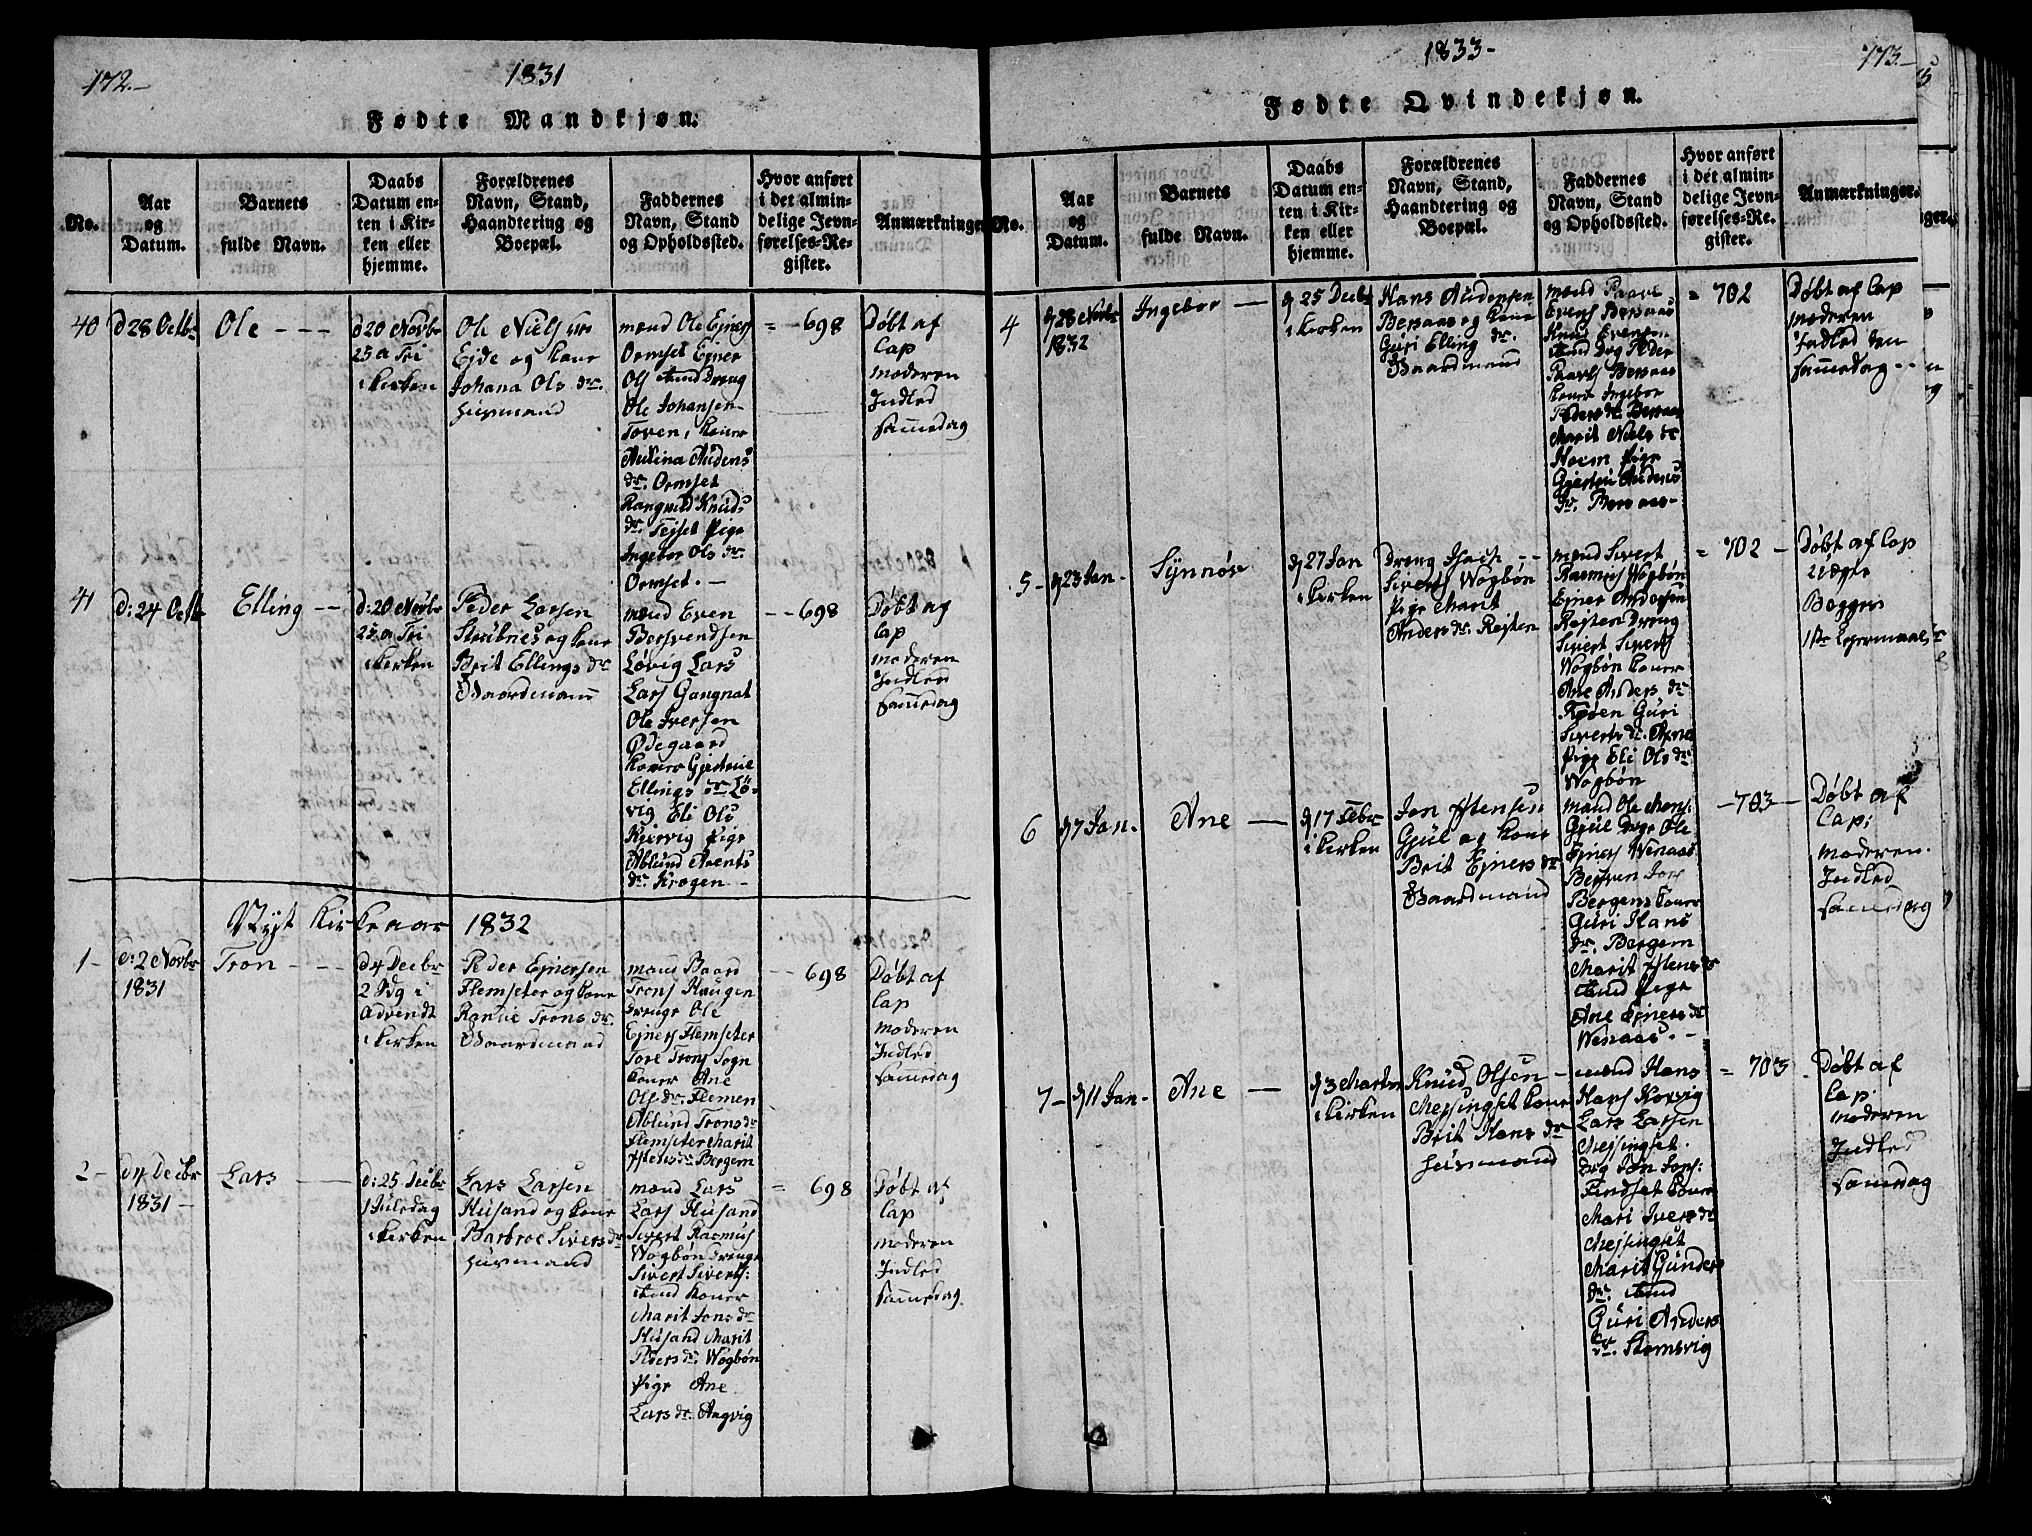 172.-
1831
Fødte Mandkjøn.
No.
Aar
og
Datum.
Barnets
fulde Navn.
Daabs
Datum en-
ten i Kir-
ken eller
hjemme.
Forældrenes
Navn, Stand,
Haandtering og
Boepæl.
Faddernes
Navn, Stand
og Opholdssted.
Hvor anført
i det almin-
delige Jevn-
førelses-Re-
gister.
Anmærkninger
40
d 28 Octbr
Ole - - -
d 20 Novbr
25 a Tri
i kirken
Ole Niels
Ejde og kone
Johana Ols dr.
Huusmand
mænd Ole Ejners
Ormset Ejner
Ols
Ole Johansen
Toven, koner
Anders
dr. Ormset
Knuds
dr. Tejset Pige
Ingebor Ols dr.
Ormset. -
= - 698
Døbt af
Cap
moderen
Indled
sammedag
41
d: 24 Octb
Elling - -
d: 20 Novbr
25. a Tri
i kirken
Peder Larsen
og kone
Brit Ellings dr
Gaardmand
mænd Even
Bersvendsen
Løvig Lars
Lars Gangnat
Ole Iversen
Ødegaard
koner
Ellings dr Lø-
vig Eli Ols
Pige
dr. Krogen -
- - 698
Døbt af
Cap
moderen
Indled
sammedag
Nyt Kirkeaar 1832
1 -
d: 2 Novbr
1831
Tron - - -
d 4 Decbr
2 Sdg i
Advendt
i kirken
Peder Ejnersen
Flemseter og kone
Trons dr.
Gaardmand
mænd Baard
Trons Haugen
Drenge Ole
Ejners Flemseter
Tore Trons Sogn
koner Ane
Ols dr. Flemen
Trons dr
Flemseter Marit
dr. Bergem
- - 698
Døbt af
Cap
moderen
Indled
sammedag
2 -
d 4 Decbr
1831 -
Lars -
d: 25 Decbr
1 Juledag
i kirken
Lars Larsen
Husand og kone
Barbroe Sivers dr
Huusmand
mænd Lars
Lars Husand
Sivert Rasmus
Wogbøn Drenge
Sivert Siverts:
koner
Marit Jons dr
Husand Marit
Peders dr. Wogbøn
Pige Ane
Lars dr. Angvig
= 698
Døbt af
Cap
moderen
Indled
sammedag
1833-
173.-
Fødte Qvindekjøn.
No.
Aar
og
Datum.
Barnets
fulde Navn.
Daabs
Datum en-
ten i Kir-
ken eller
hjemme.
Forældrenes
Navn, Stand,
Haandtering og
Boepæl.
Faddernes
Navn, Stand
og Opholdssted.
Hvor anført
i det almin-
delige Jevn-
førelses-Re-
gister.
Anmærkninger.
4
d 28 Novbr
1832
Ingebor -
d 25 Decbr
i kirken
Hans Andersen
Bersaas og kone
Guri Elling dr.
Gaardmand
mænd
Evens Bersaas
Knud Evensen
Peder
Bersaas
koner Ingebor
Peders dr Bersaas
Marit Niels dr
Pige
Anders
dr. Bersaas -
= 702
Døbt af Cap
moderen
Indled den
sammedag - -
5 -
d 23 Jan -
Synnøv
d 27 Jan
i kirken
Dreng Isach - -
Siverts Wogbøn
Pige Marit
Anders dr. Rejten
mænd Sivert
Rasmus Wogbøn
Ejner Andersen
Rejten Dreng
Sivert Siverts
Wogbøn koner
Ane Anders dr
Guri
Siverts dr.
Pige Eli Ols dr
Wogbøn
= 702 -
Døbt af Cap
Begges
1ste Lejermaal
6
d 7 Jan -
Ane -
d 17 Febr
i kirken
Jon
Gjul og kone
Brit Ejners dr
Gaardmand
mænd Ole
Gjul Drge Ole
Ejners Wenaas
Bergem koner
Guri Hans
dr. Bergem
Marit
Pige
Ane Ejners dr
Wenaas. -
- 703 -
Døbt af
Cap;
moderen.
Indled
sammedag
7 -
d 11 Jan -
Ane -
d 3 Marts
i kirken
Knud Olsen -
Messingset kone
Brit Hans dr
Huusmand
mænd Hans
Hans Korvig
Lars Larsen
Messingset.
Drg Jon Jons:
koner
Mari Ivers dr
Messingset
Marit Gunders
dr.
Guri Anders
dr. Stomsvig
= 703
Døbt af
Cap
moderen
Indled
samedag